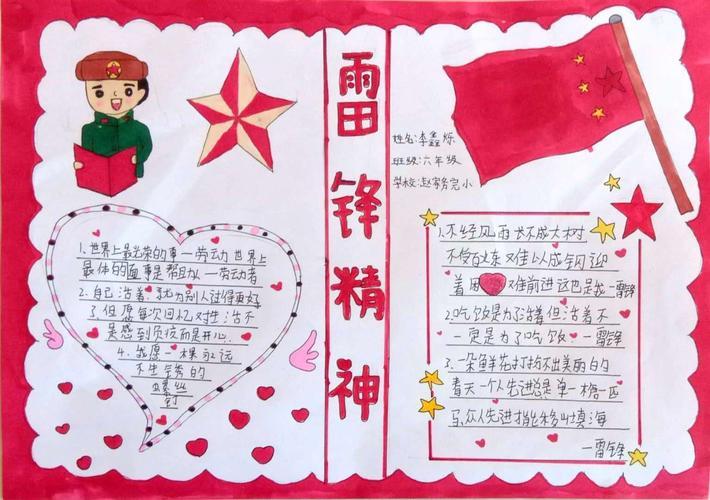 雷锋精神
姓名:李鑫烁
班级:六年级
学校:赵家务完小
1.世界上最光荣的事一劳动世界上
最体的事是帮一劳动者
2.自己活着,就为别人过得更好
3但愿每次回忆对生活不
是感到负疚而是开心.
4.我愿一棵永远
不生锈的
螺丝
钉
1.不经风雨长不成大树
不受百炼难以成钢迎
着困难前进这也是我一雷锋
2.吃饭是为了活着但活着不
一定是为了吃饭一雷锋
3.一朵鲜花打扮不出美丽的
春天一个人先进总是单一枪一匹
马,众人先进才能移山填海
一雷锋